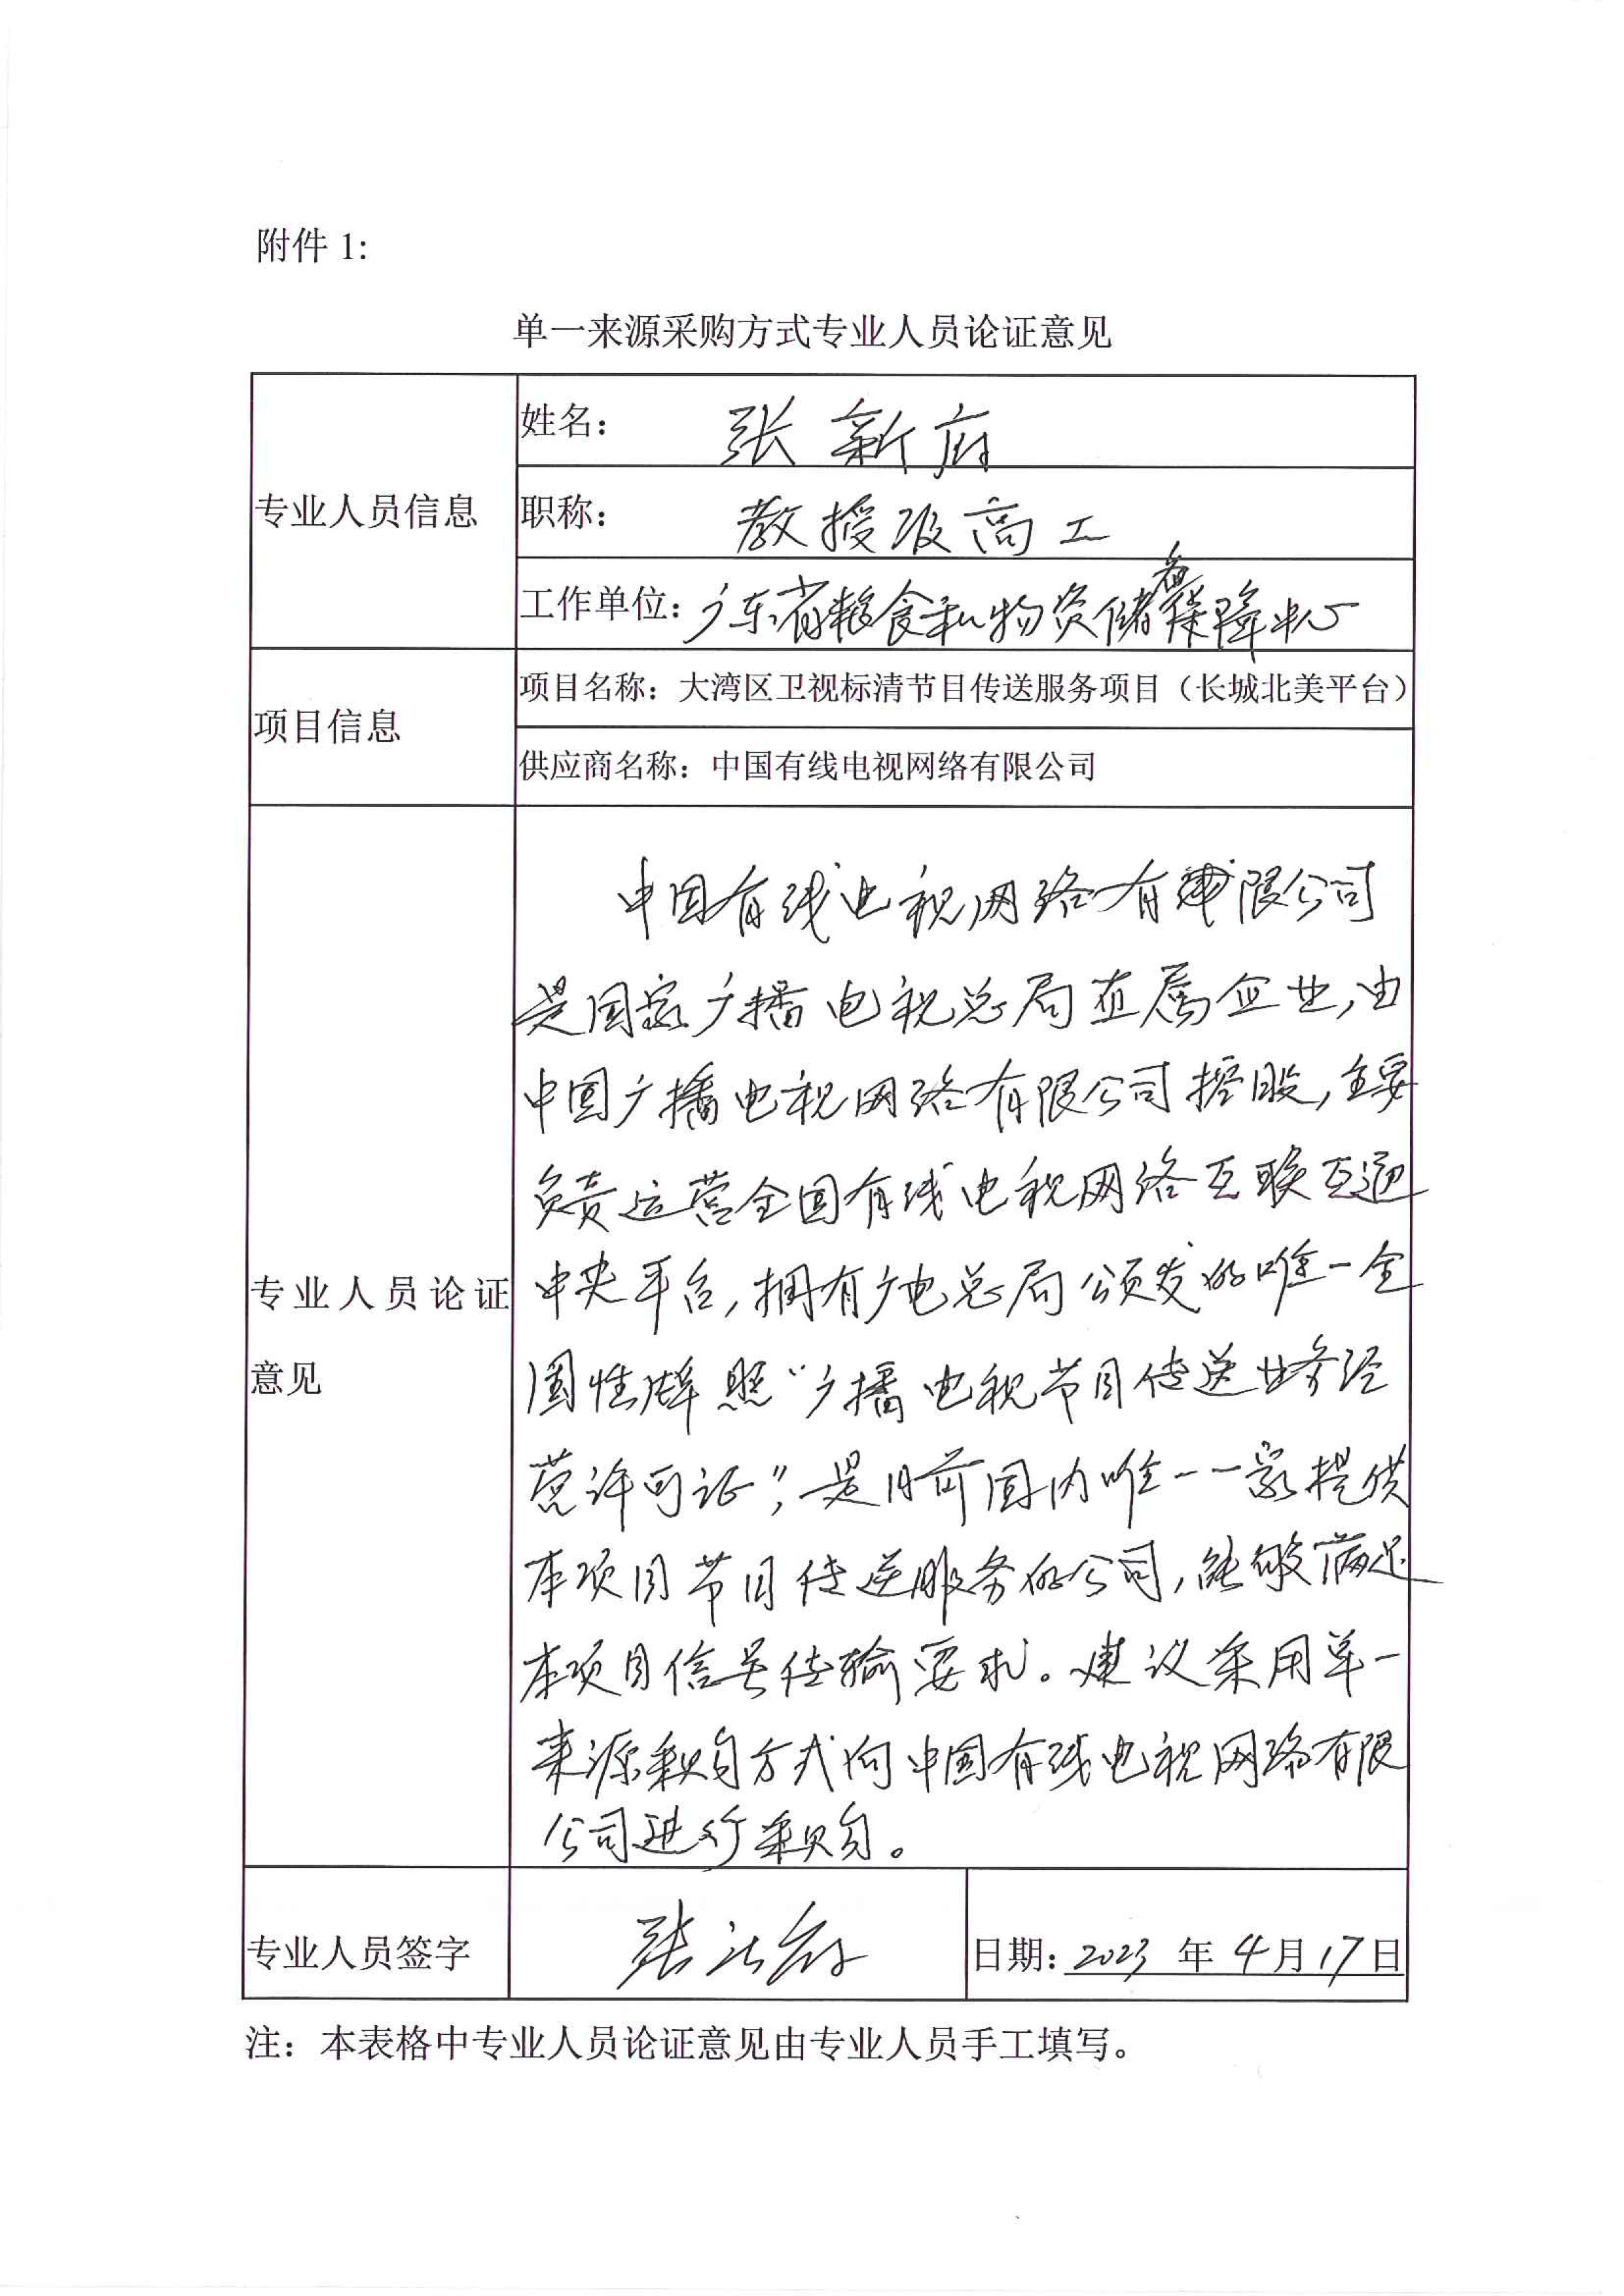 附件 1:
单一来源采购方式专业人员论证意见
专业人员信息
姓名： 张新府
职称： 教授级高工
工作单位：广东省粮食和物资储备保障中心
项目信息
项目名称：大湾区卫视标清节目传送服务项目（长城北美平台）
供应商名称：中国有线电视网络有限公司
专业人员论证
意见
中国有线电视网络有限公司
是国家广播电视总局直属企业，由
中国广播电视网络有限公司控股，主要
负责运营全国有线电视网络互联互通
中央平台，拥有广电总局颁发的唯一全
国性牌照“广播电视节目传送业务经
营许可证”，是目前国内唯一一家提供
本项目节目传送服务的公司，能够满足
本项目信号传输要求。建议采用单一
来源采购方式向中国有线电视网络有限
公司进行采购。
专业人员签字
张新府
日期：2023 年 4 月 17 日
注：本表格中专业人员论证意见由专业人员手工填写。